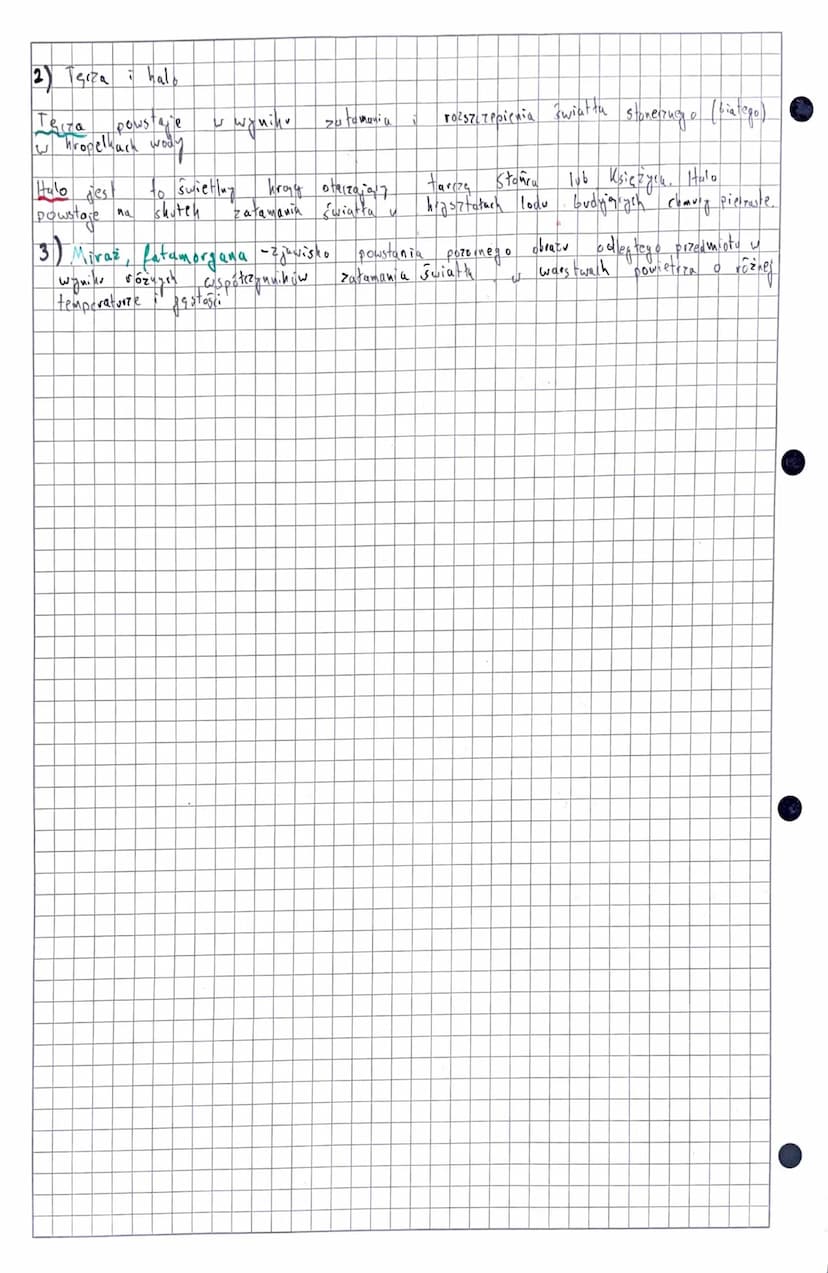 2) Tęcza i halo
Tęcza powstaje w wyniku załamania i rozszczepienia światła słonecznego (białego)
w kropelkach wody
Halo jest to świetlny krąg otaczający tarczę Słońca lub Księżyca. Halo
powstaje na skutek załamania światła w kryształach lodu budujących chmury pierzaste.
3) Miraż, fatamorgana - zjawisko powstania pozornego obrazu odległego przedmiotu w
wyniku różnych współczynników załamania światła w warstwach powietrza o różnej
temperaturze i gęstości